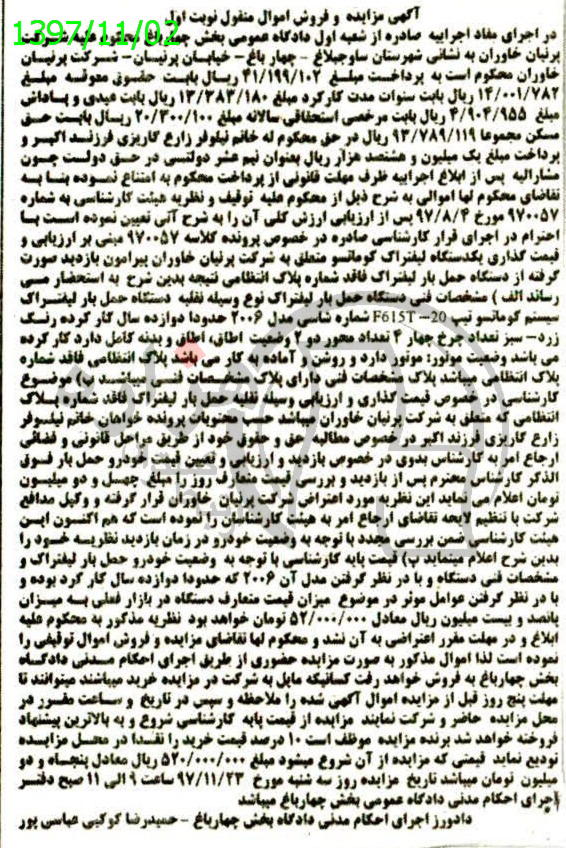 1397/11/02
آگهی مزایده و فروش اموال منقول نوبت اول
در اجرای مفاد اجراییه صادره از شعبه اول دادگاه عمومی بخش چهارباغ محکوم علیه شرکت
پرنیان خاوران به نشانی شهرستان ساوجبلاغ - چهار باغ - خیابان پرنیان - شرکت پرنیان
خاوران محکوم است به پرداخت مبلغ ۴۱/۱۹۹/۱۰۲ ریال بابت حقوق معوقه مبلغ
۱۴/۰۰۱/۷۸۲ ریال بابت سنوات مدت کارکرد مبلغ ۱۳/۳۸۳/۱۸۰ ریال بابت عیدی و پاداش
مبلغ ۴/۹۰۴/۹۵۵ ریال بابت مرخصی استحقاقی سالانه مبلغ ۲۰/۳۰۰/۱۰۰ ریسال بابت حق
مسکن مجموعا ۹۳/۷۸۹/۱۱۹ ریال در حق محکوم له خانم نیلوفر زارع گاریزی فرزند اکبر و
پرداخت مبلغ یک میلیون و هشتصد هزار ریال بعنوان نیم عشر دولتی در حق دولت چون
مشارالیه پس از ابلاغ اجراییه ظرف مهلت قانونی از پرداخت محکوم به امتناع نموده بنا به
تقاضای محکوم لها اموالی به شرح ذیل از محکوم علیه توقیف و نظریه هیئت کارشناسی به شماره
۹۷۰۰۵۷ مورخ ۹۷/۸/۴ پس از ارزیابی ارزش کلی آن را به شرح آتی تعیین نموده است با
احترام در اجرای قرار کارشناسی صادره در خصوص پرونده کلاسه ۹۷۰۰۵۷ مبنی بر ارزیابی و
قیمت گذاری یکدستگاه لیفتراک کوماتسو متعلق به شرکت پرنیان خاوران پیرامون بازدید صورت
گرفته از دستگاه حمل بار لیفتراک فاقد شماره پلاک انتظامی نتیجه بدین شرح به استحضار می
رساند الف ) مشخصات فنی دستگاه حمل بار لیفتراک نوع وسیله نقلیه دستگاه حمل بار لیفتراک
سیستم کوماتسو تیپ F615T -20 شماره شاسی مدل ۲۰۰۶ حدودا دوازده سال کار کرده رنگ
زرد- سبز تعداد چرخ چهار ۴ تعداد محور دو ۲ وضعیت اطاق، اطاق و بدنه کامل دارد کار کرده
می باشد وضعیت موتور: موتور دارد و روشن و آماده به کار می باشد پلاک انتظامی فاقد شماره
پلاک انتظامی میباشد پلاک مشخصات فنی دارای پلاک مشخصات فنی میباشد ب) موضوع
کارشناسی در خصوص قیمت گذاری و ارزیابی وسیله نقلیه حمل بار لیفتراک فاقد شماره پلاک
انتظامی که متعلق به شرکت پرنیان خاوران میباشد حسب محتویات پرونده خواهان خانم نیلوفر
زارع گاریزی فرزند اکبر در خصوص مطالبه حق و حقوق خود از طریق مراحل قانونی و قضائی
ارجاع امر به کارشناس بدوی در خصوص بازدید و ارزیابی و تعیین قیمت خودرو حمل بار فوق
الذکر کارشناس محترم پس از بازدید و بررسی قیمت متعارف روز را مبلغ چهل و دو میلیون
تومان اعلام می نماید این نظریه مورد اعتراض شرکت پرنیان خاوران قرار گرفته و وکیل مدافع
شرکت با تنظیم لایحه تقاضای ارجاع امر به هیئت کارشناسان را نموده است که هم اکنون این
هیئت کارشناسی ضمن بررسی مجدد با توجه به وضعیت خودرو در زمان بازدید نظریه خود را
بدین شرح اعلام مینماید پ) قیمت پایه کارشناسی با توجه به وضعیت خودرو حمل بار لیفتراک و
مشخصات فنی دستگاه و با در نظر گرفتن مدل آن ۲۰۰۶ که حدودا دوازده سال کار کرد بوده و
با در نظر گرفتن عوامل موثر در موضوع میزان قیمت متعارف دستگاه در بازار فعلی به میزان
پانصد و بیست میلیون ریال معادل ۵۲/۰۰۰/۰۰۰ تومان خواهد بود نظریه مذکور به محکوم علیه
ابلاغ و در مهلت مقرر اعتراضی به آن نشد و محکوم لها تقاضای مزایده و فروش اموال توقیفی را
نموده است لذا اموال مذکور به صورت مزایده حضوری از طریق اجرای احکام مدنی دادگاه
بخش چهارباغ به فروش خواهد رفت کسانیکه مایل به شرکت در مزایده خرید میباشند میتوانند تا
مهلت پنج روز قبل از مزایده اموال آگهی شده را ملاحظه و سپس در تاریخ و ساعت مقرر در
محل مزایده حاضر و شرکت نمایند مزایده از قیمت پایه کارشناسی شروع و به بالاترین پیشنهاد
فروخته خواهد شد برنده مزایده موظف است ۱۰ درصد قیمت خرید را نقدا در محل مزایده
تودیع نماید قیمتی که مزایده از آن شروع میشود مبلغ ۵۲۰/۰۰۰/۰۰۰ ریال معادل پنجاه و دو
میلیون تومان میباشد تاریخ مزایده روز سه شنبه مورخ ۹۷/۱۱/۲۳ ساعت ۹ الی ۱۱ صبح دفتر
اجرای احکام مدنی دادگاه عمومی بخش چهارباغ میباشد
دادورز اجرای احکام مدنی دادگاه بخش چهارباغ - حمیدرضا کوکبی عباسی پور